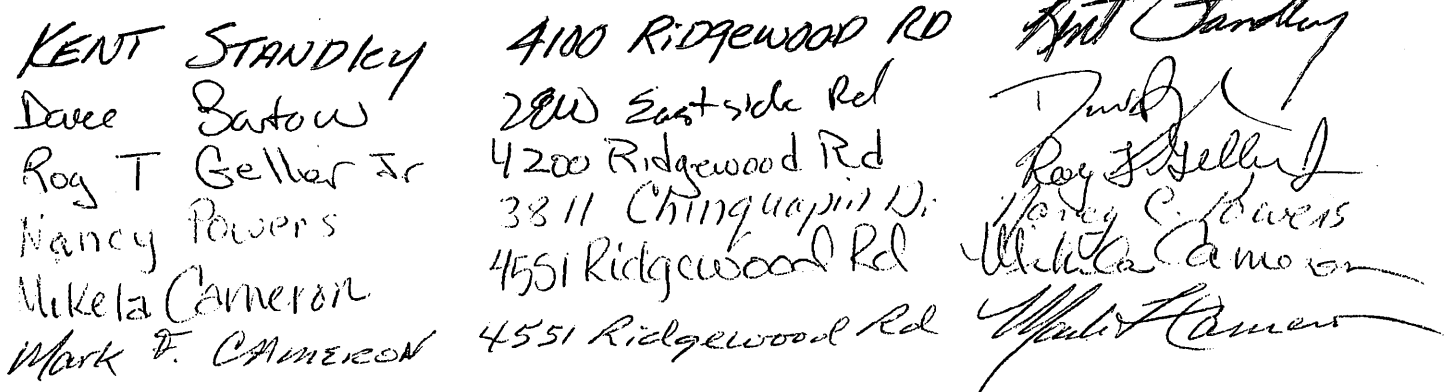 KENT STANDLEY 4100 RIDGEWOOD RD Kent Standley
Dave Bartow Eastside Rd
Roy T Gellier Jr 4200 Ridgewood Rd Roy T Gellier Jr
Nancy Powers 3811 Chinquapin Dr Nancy C. Powers
Mikela Cameron 4551 Ridgewood Rd Mikela Cameron
Mark F. CAMERON 4551 Ridgewood Rd Mark F Cameron